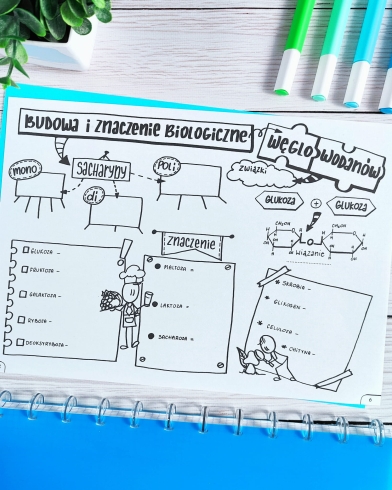 BUDOWA i ZNACZENIE BIOLOGICZNE
WĘGLO WODANÓW
mono
SACHARYDY
POLI
di
ZWIĄZKI
GLUKOZA + GLUKOZA
CH₂OH CH₂OH
O
WIĄZANIE
ZNACZENIE
GLUKOZA -
FRUKTOZA -
GALAKTOZA -
RYBOZA -
DEOKSYRYBOZA -
MALTOZA =
LAKTOZA =
SACHAROZA =
* SKROBIA -
* GLIKOGEN -
* CELULOZA -
* CHITYNA -
6